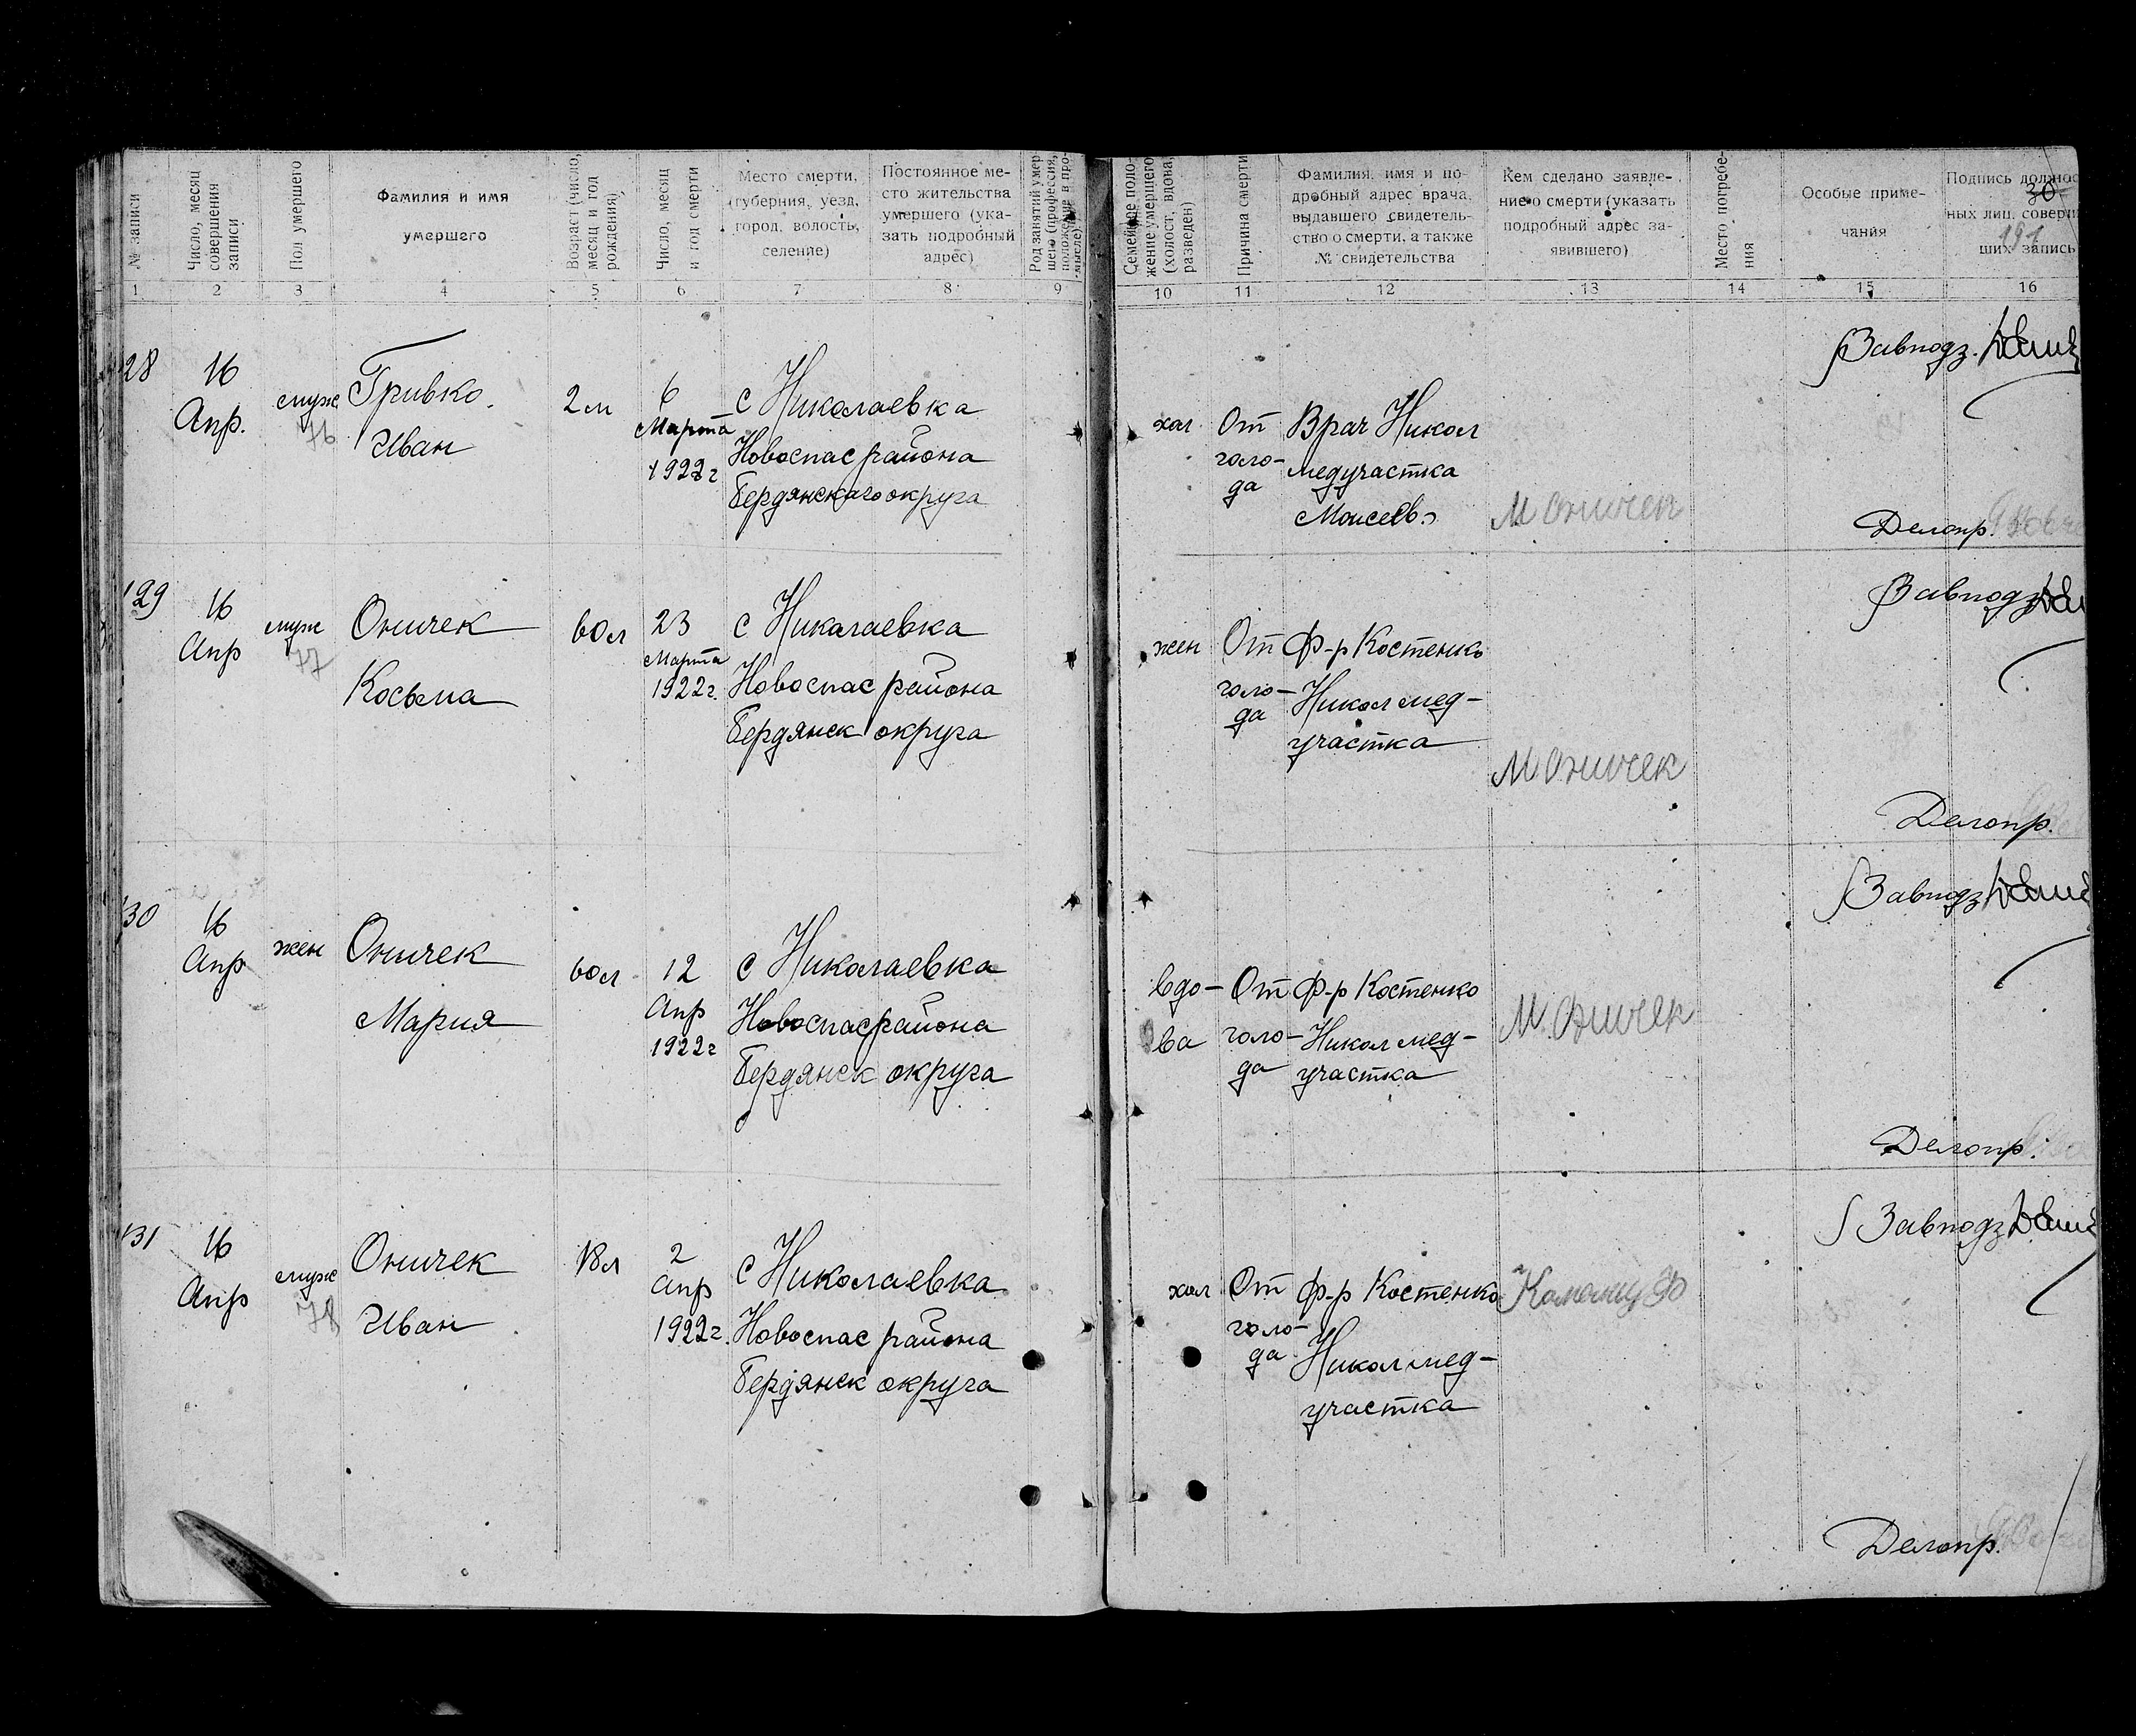 № записи
Число, месяц
совершения
записи
Пол умершего
Фамилия и имя
умершего
Возраст (число,
месяц и год
рождения)
Число, месяц
и год смерти
Место смерти,
(губерния, уезд,
город, волость,
селение)
Постоянное ме-
сто жительства
умершего (ука-
зать подробный
адрес)
Род занятий умер-
шего (профессия,
положение в про-
мысле)
Семейное поло-
жение умершего
(холост, вдова,
разведен)
Причина смерти
Фамилия, имя и по-
дробный адрес врача,
выдавшего свидетель-
ство о смерти, а также
№ свидетельства
Кем сделано заявле-
ние о смерти (указать
подробный адрес за-
явившего)
Место погребе-
ния
Особые приме-
чания
Подпись должнос
ных лиц, соверш
ших запись
30
191
1 2 3 4 5 6 7 8 9 10 11 12 13 14 15 16
128
16
Апр.
муж
76
Гривко
Иван
2 м
6
Марта
1922 г
с Николаевка
Новоспас района
Бердянского округа
хол
От
голо-
да
Врач Никол
медучастка
Моисеев
М Оничек
Завподз.
Делопр.
129
16
Апр
муж
77
Оничек
Косьма
60 л
23
Марта
1922 г.
с Николаевка
Новоспас района
Бердянск округа
жен
От
голо-
да
Ф-р Костенко
Никол мед-
участка
М Оничек
Завподз
Делопр.
130
16
Апр
жен
Оничек
Мария
60 л
12
Апр
1922 г
с Николаевка
Новоспас района
Бердянск округа
вдо-
ва
От
голо-
да
Ф-р Костенко
Никол мед-
участка
М. Оничек
Завподз
Делопр.
131
16
Апр
муж
78
Оничек
Иван
18 л
2
Апр
1922 г.
с Николаевка
Новоспас района
Бердянск округа
хол
От
голо-
да
Ф-р Костенко
Никол мед-
участка
Завподз
Делопр.